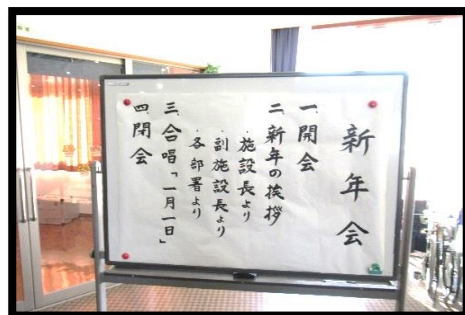 新年会
一、開会
二、新年の挨拶
・施設長より
・副施設長より
・各部署より
三、合唱「一月一日」
四、閉会